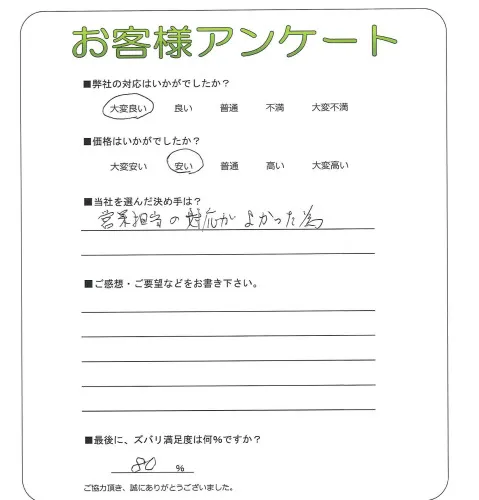 お客様アンケート
■弊社の対応はいかがでしたか？
大変良い 良い 普通 不満 大変不満
■価格はいかがでしたか？
大変安い 安い 普通 高い 大変高い
■当社を選んだ決め手は？
営業担当の対応がよかった為
■ご感想・ご要望などをお書き下さい。
■最後に、ズバリ満足度は何%ですか？
80 %
ご協力頂き、誠にありがとうございました。